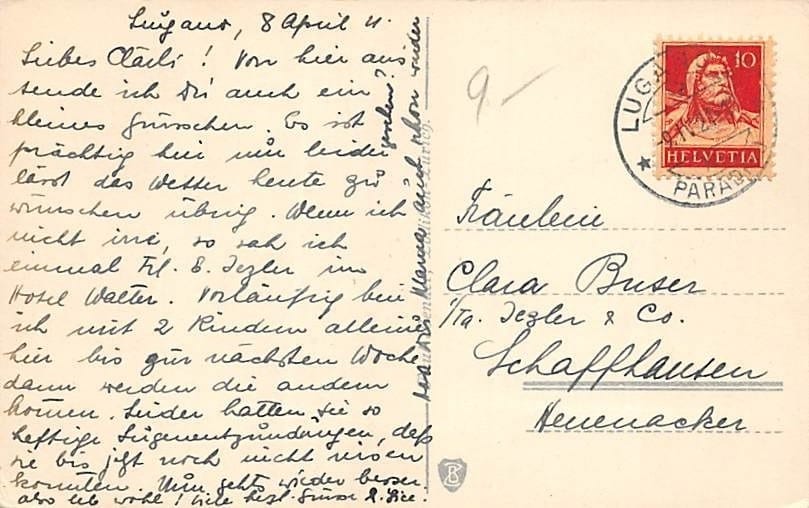 Lugano, 8 April
Liebes Clärli! Von hier aus
sende ich Dir auch ein
kleines Grüsschen. Es ist
prächtig hier nur leider
lässt das Wetter heute zu
wünschen übrig. Wenn ich
nicht irre, so sah ich
einmal Frl. E. Jezler im
Hotel Walter. Vorläufig bin
ich mit 2 Kindern alleine
hier bis zur nächsten Woche
dann werden die andern
kommen. Leider hatten sie so
heftige Lugenentzündungen, daß
sie bis jetzt noch nicht reisen
konnten. Nun gehts wieder besser.
also leb wohl! Viele herzl. Grüsse
Mama auch schon wieder
gesehen?
9-
10
HELVETIA
LUGA
PARAD
Fräulein
Clara Buser
i/Fa. Jezler & Co.
Schaffhausen
Herrenacker